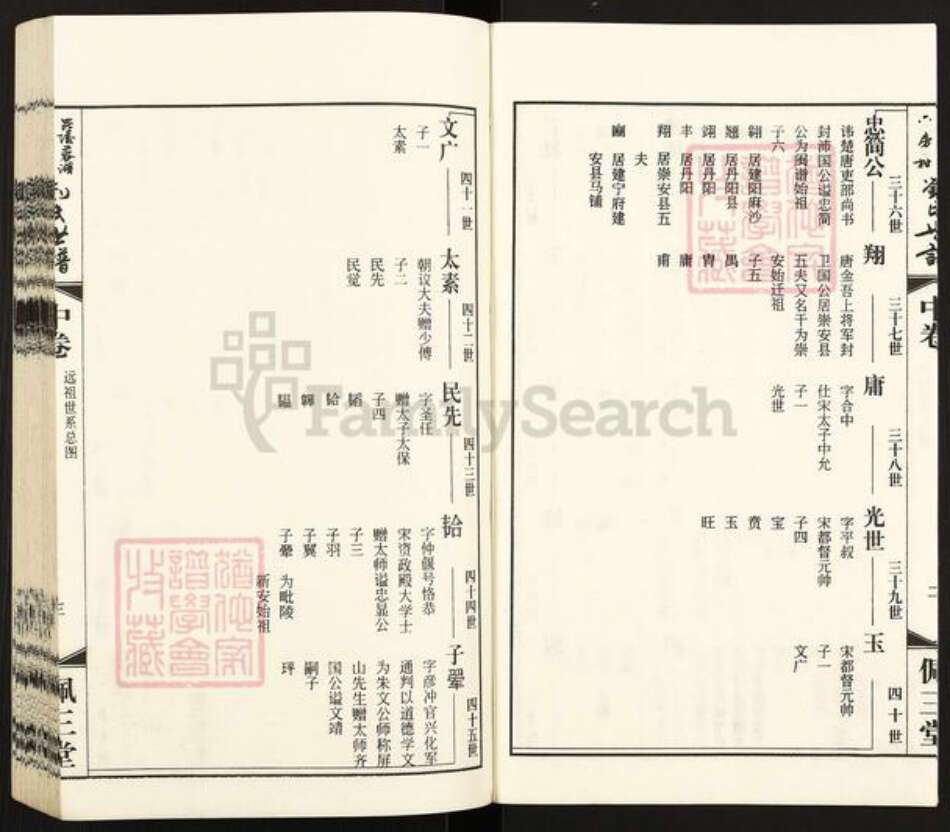 三十六世
忠简公
讳楚唐吏部尚书
封沛国公谥忠简
公为闽谱始祖
子六
翱 居建阳麻沙
翘 居丹阳县
翊 居丹阳
丰 居丹阳
翔 居崇安县五
夫
豳 居建宁府建
安县马铺
三十七世
翔
唐金吾上将军封
卫国公居崇安县
五夫又名干为崇
安始迁祖
子五
禹
胄
庸
甫
三十八世
庸
字合中
仕宋太子中允
子一
光世
三十九世
光世
字平叔
宋都督元帅
子四
宝
贲
玉
旺
四十世
玉
宋都督元帅
子一
文广
佩三堂
中卷
四十一世
文广
子一
太素
四十二世
太素
朝议大夫赠少傅
子二
民先
民觉
四十三世
民先
字圣任
赠太子太保
子四
韬
韐
韠
韫
四十四世
韐
字仲偃号恪恭
宋资政殿大学士
赠太师谥忠显公
子三
子羽
子翼
子翚 为毗陵
新安始祖
四十五世
子翚
字彦冲官兴化军
通判以道德学文
为朱文公师称屏
山先生赠太师齐
国公谥文靖
嗣子
玶
世谱
中卷
远祖世系总图
三
佩三堂
FamilySearch